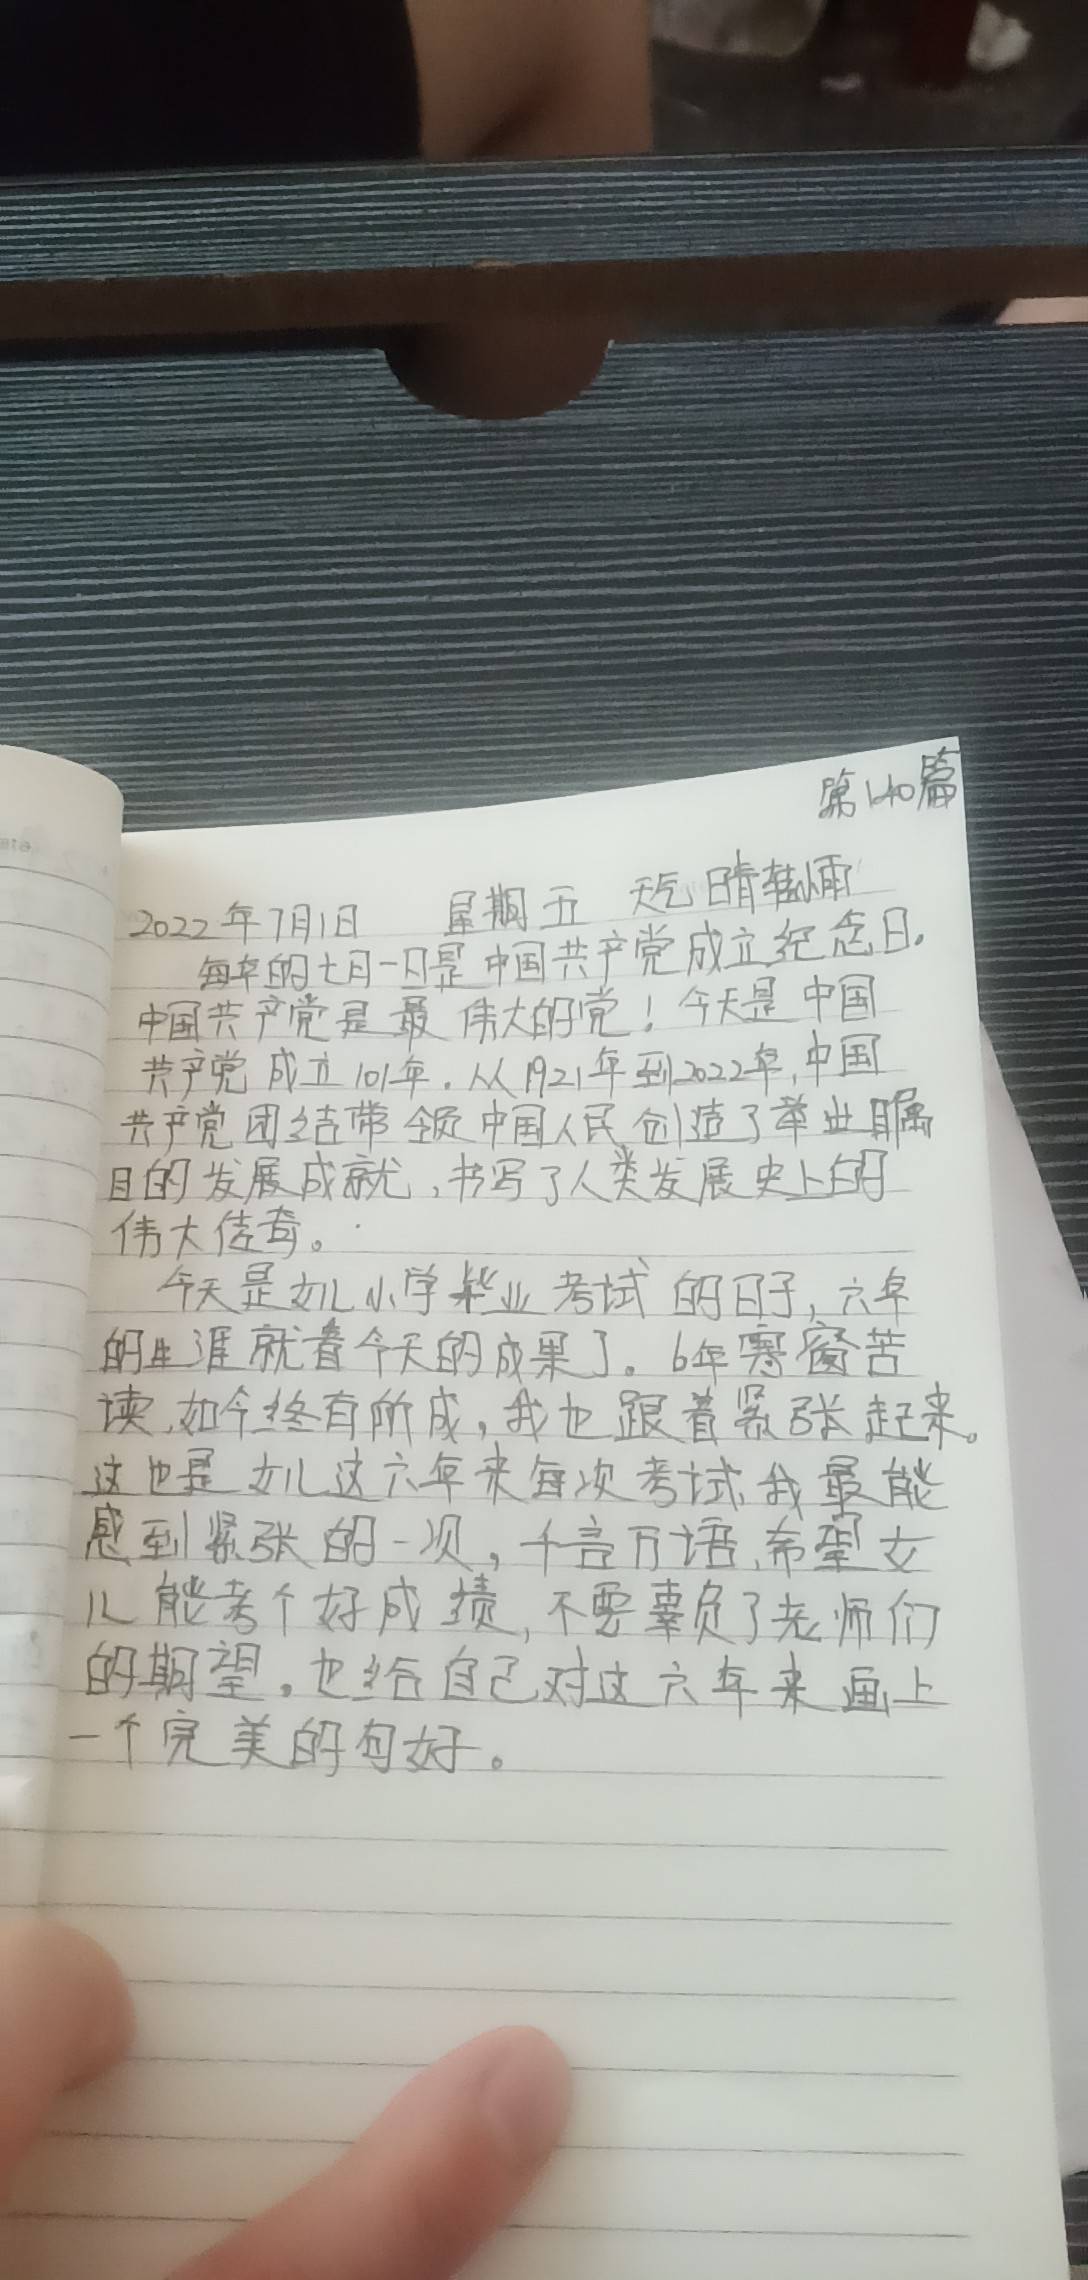 第140篇
2022年7月1日 星期五 天气 晴转小雨
每年的七月一日是中国共产党成立纪念日。
中国共产党是最伟大的党！今天是中国
共产党成立101年。从1921年到2022年，中国
共产党团结带领中国人民创造了举世瞩
目的发展成就，书写了人类发展史上的
伟大传奇。
今天是女儿小学毕业考试的日子，六年
的生涯就看今天的成果了。6年寒窗苦
读，如今终有所成，我也跟着紧张起来。
这也是女儿这六年来每次考试，我最能
感到紧张的一次，千言万语，希望女
儿能考个好成绩，不要辜负了老师们
的期望。也给自己对这六年来画上
一个完美的句好。